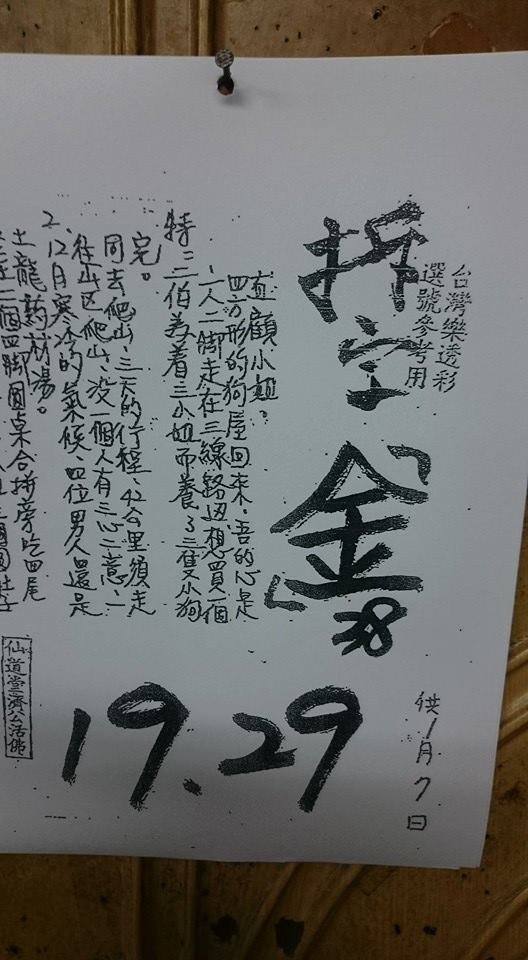 台灣樂透彩
選號參考用
拆字
「金」
38
二個四脚圓桌合拼旁吃四尾
土龍葯材湯。
2. 12月寒冷的氣候、四位男人還是
往山区爬山、沒一個人有三心二意、二
同去爬山、三天的行程、42公里須走
完。
特:三伯為着三小姐而養了三隻小狗
一人二脚走在三線路边想買一個
四方形的狗屋回來、吾的心是
直顧小姐。
19.29
供1月7日
仙道堂濟公活佛